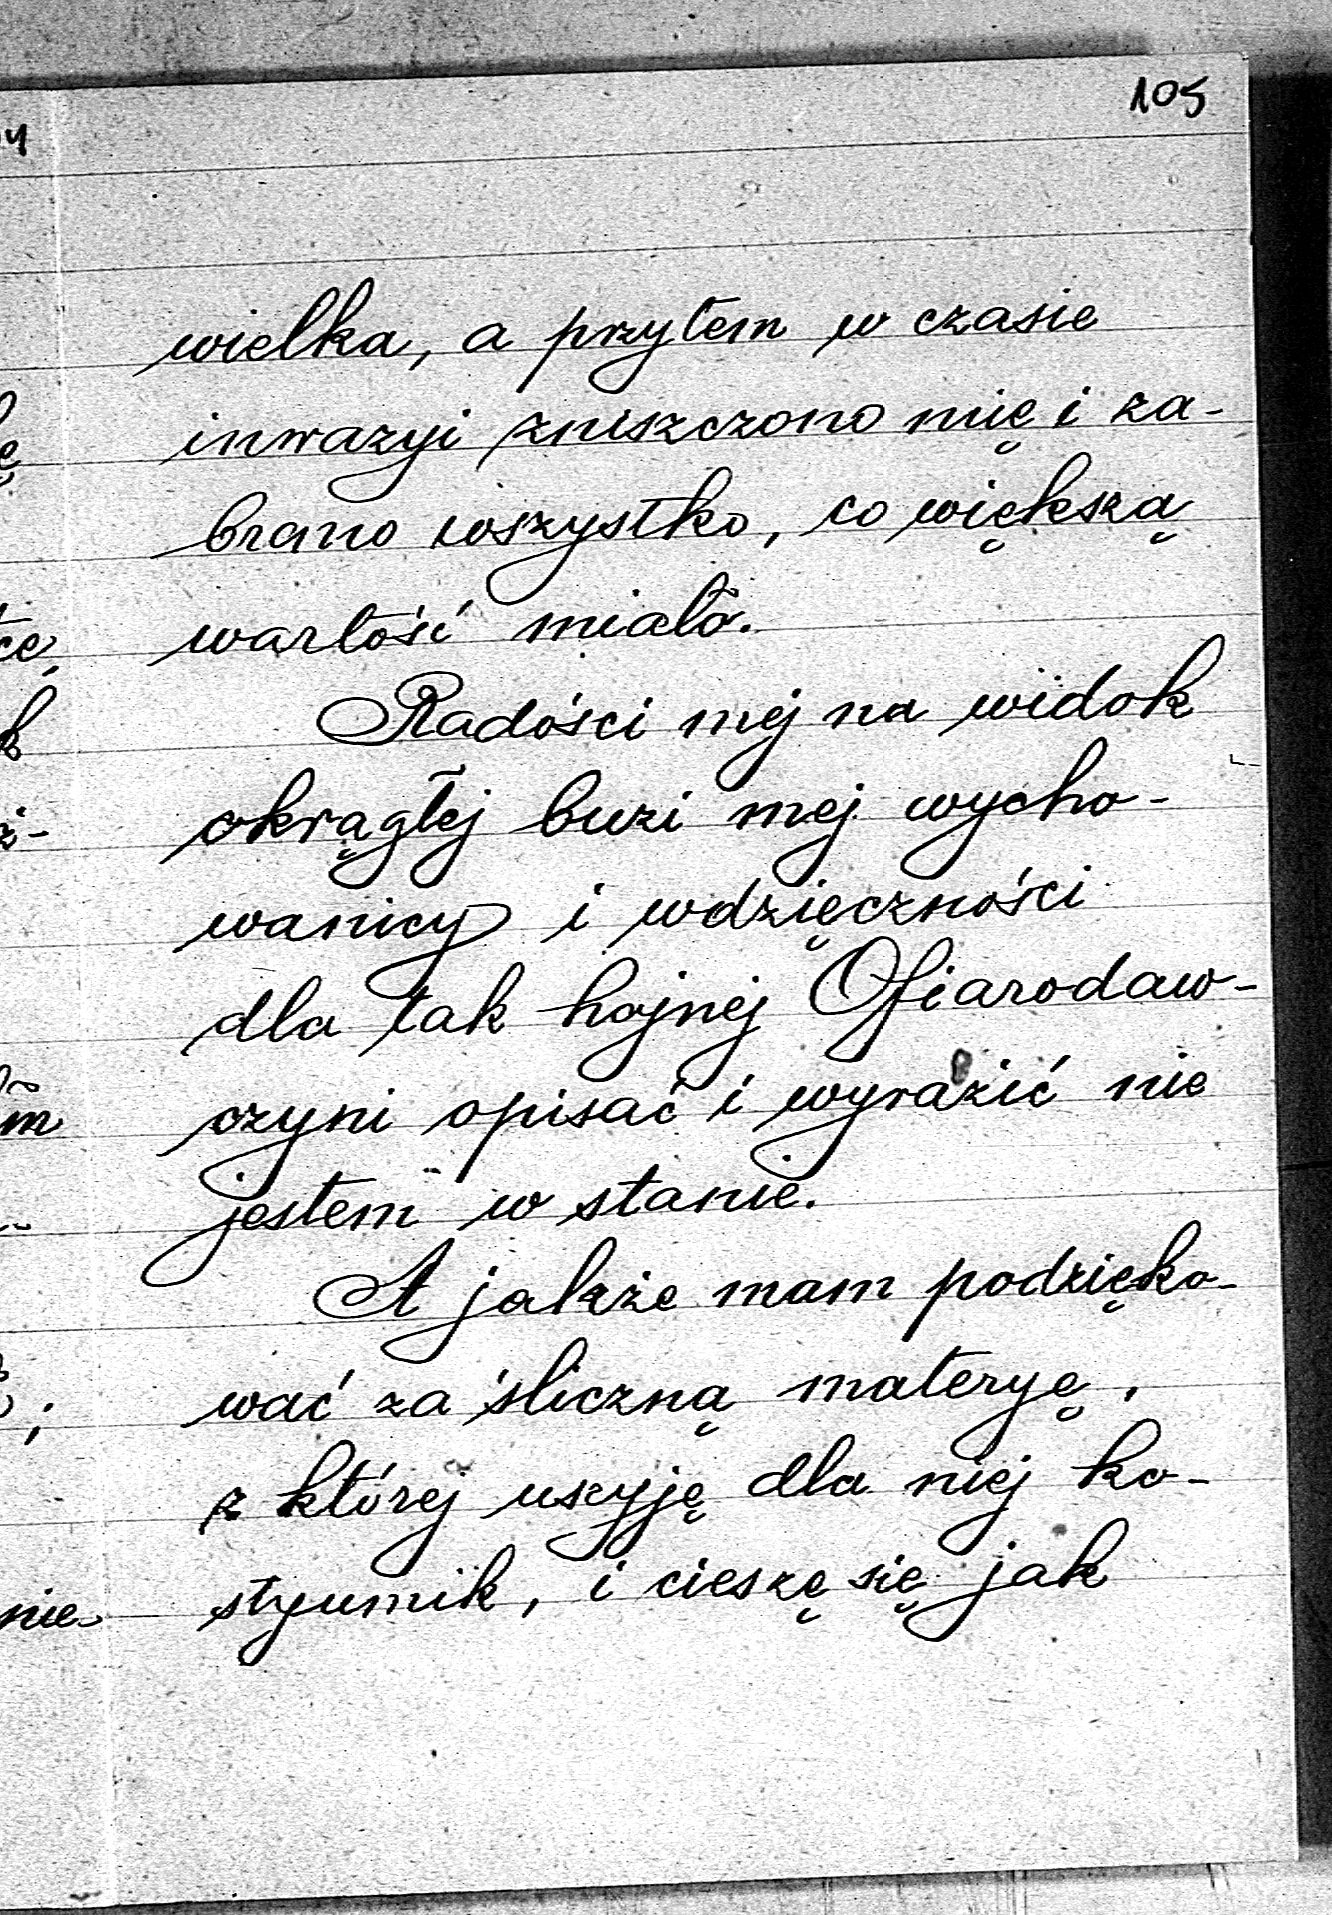 105
wielka, a przytem w czasie
inwazyi zniszczono mię i za-
brano wszystko, co większą
wartość miało.
Radości mej na widok
okrągłej buzi mej wycho-
wanicy i wdzięczności
dla tak hojnej Ofiarodaw-
czyni opisać i wyrazić nie
jestem w stanie.
A jakże mam podzięko-
wać za śliczną materyę,
z której uszyję dla niej ko-
styumik, i cieszę się jak